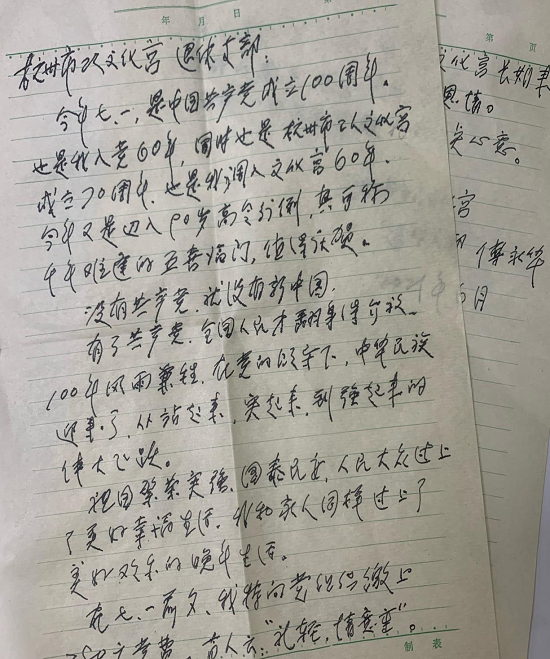 年 月 日
杭州市工人文化宫 退休支部：
今年七.一，是中国共产党成立100周年。
也是我入党60年，同时也是杭州市工人文化宫
成立70周年，也是我调入文化宫60年，
今年又是迈入90岁高令行例，真可称
千年难逢的五喜临门，值得庆贺。
没有共产党，就没有新中国，
有了共产党，全国人民才翻身得介放。
100年风雨兼程，在党的领导下，中华民族
迎来了，从站起来，富起来，到强起来的
伟大飞跃。
祖国繁荣富强，国泰民安，人民大众过上
了美好幸福生活，我和家人同样过上了
美好欢乐的晚年生活。
在七.一前夕，我特向党组织缴上
党费，古人云：“礼轻，情意重”。
制 表
第 页
文化宫
恩情。
心意。
宫
傅永华
月